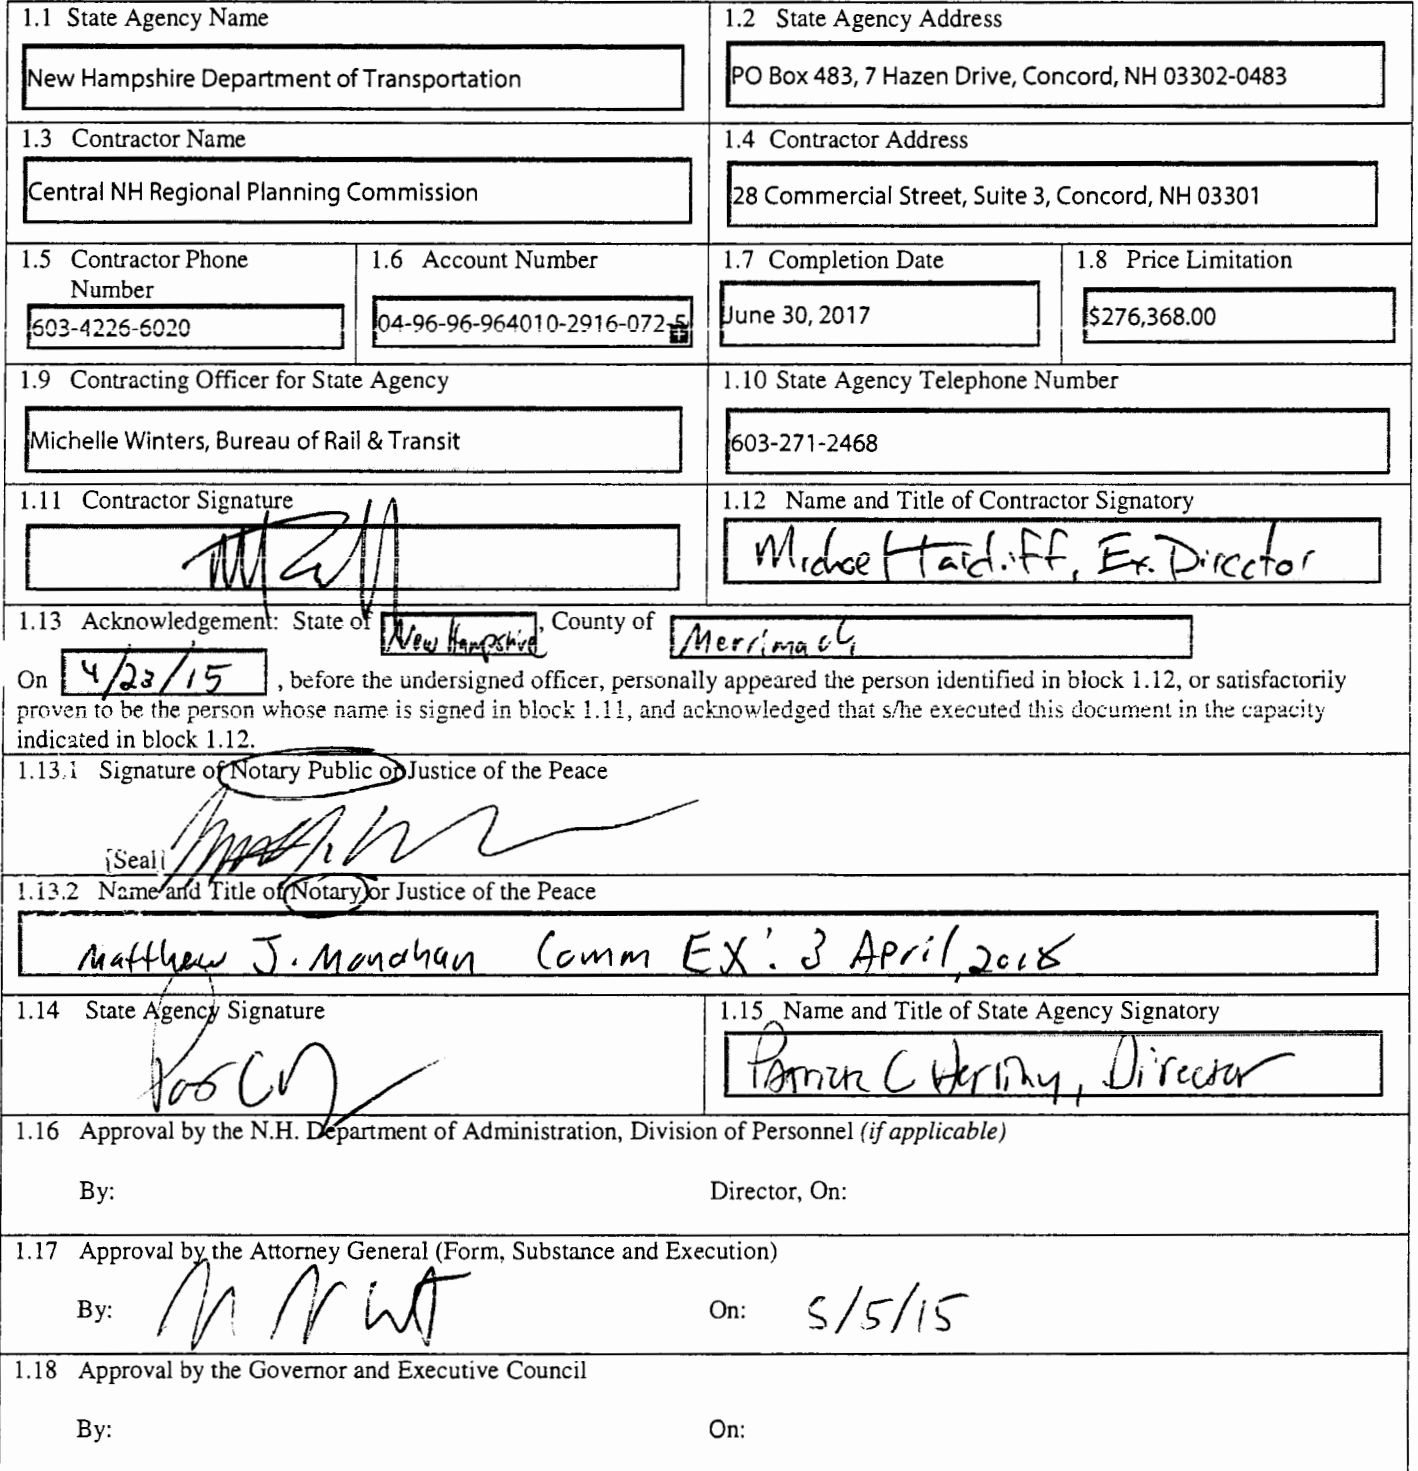 1.1 State Agency Name
1.2 State Agency Address
New Hampshire Department of Transportation
PO Box 483, 7 Hazen Drive, Concord, NH 03302-0483
1.3 Contractor Name
1.4 Contractor Address
Central NH Regional Planning Commission
28 Commercial Street, Suite 3, Concord, NH 03301
1.5 Contractor Phone
Number
1.6 Account Number
1.7 Completion Date
1.8 Price Limitation
603-4226-6020
04-96-96-964010-2916-072-5
June 30, 2017
$276,368.00
1.9 Contracting Officer for State Agency
1.10 State Agency Telephone Number
Michelle Winters, Bureau of Rail & Transit
603-271-2468
1.11 Contractor Signature
1.12 Name and Title of Contractor Signatory
Michael Tardiff, Ex. Director
1.13 Acknowledgement: State of New Hampshire, County of Merrimack
On 4/23/15, before the undersigned officer, personally appeared the person identified in block 1.12, or satisfactorily
proven to be the person whose name is signed in block 1.11, and acknowledged that s/he executed this document in the capacity
indicated in block 1.12.
1.13.1 Signature of Notary Public or Justice of the Peace
[Seal]
1.13.2 Name and Title of Notary or Justice of the Peace
Matthew J. Monahan Comm EX: 3 April, 2018
1.14 State Agency Signature
1.15 Name and Title of State Agency Signatory
Patrick C Herlihy, Director
1.16 Approval by the N.H. Department of Administration, Division of Personnel (if applicable)
By:
Director, On:
1.17 Approval by the Attorney General (Form, Substance and Execution)
By:
On: 5/5/15
1.18 Approval by the Governor and Executive Council
By:
On: